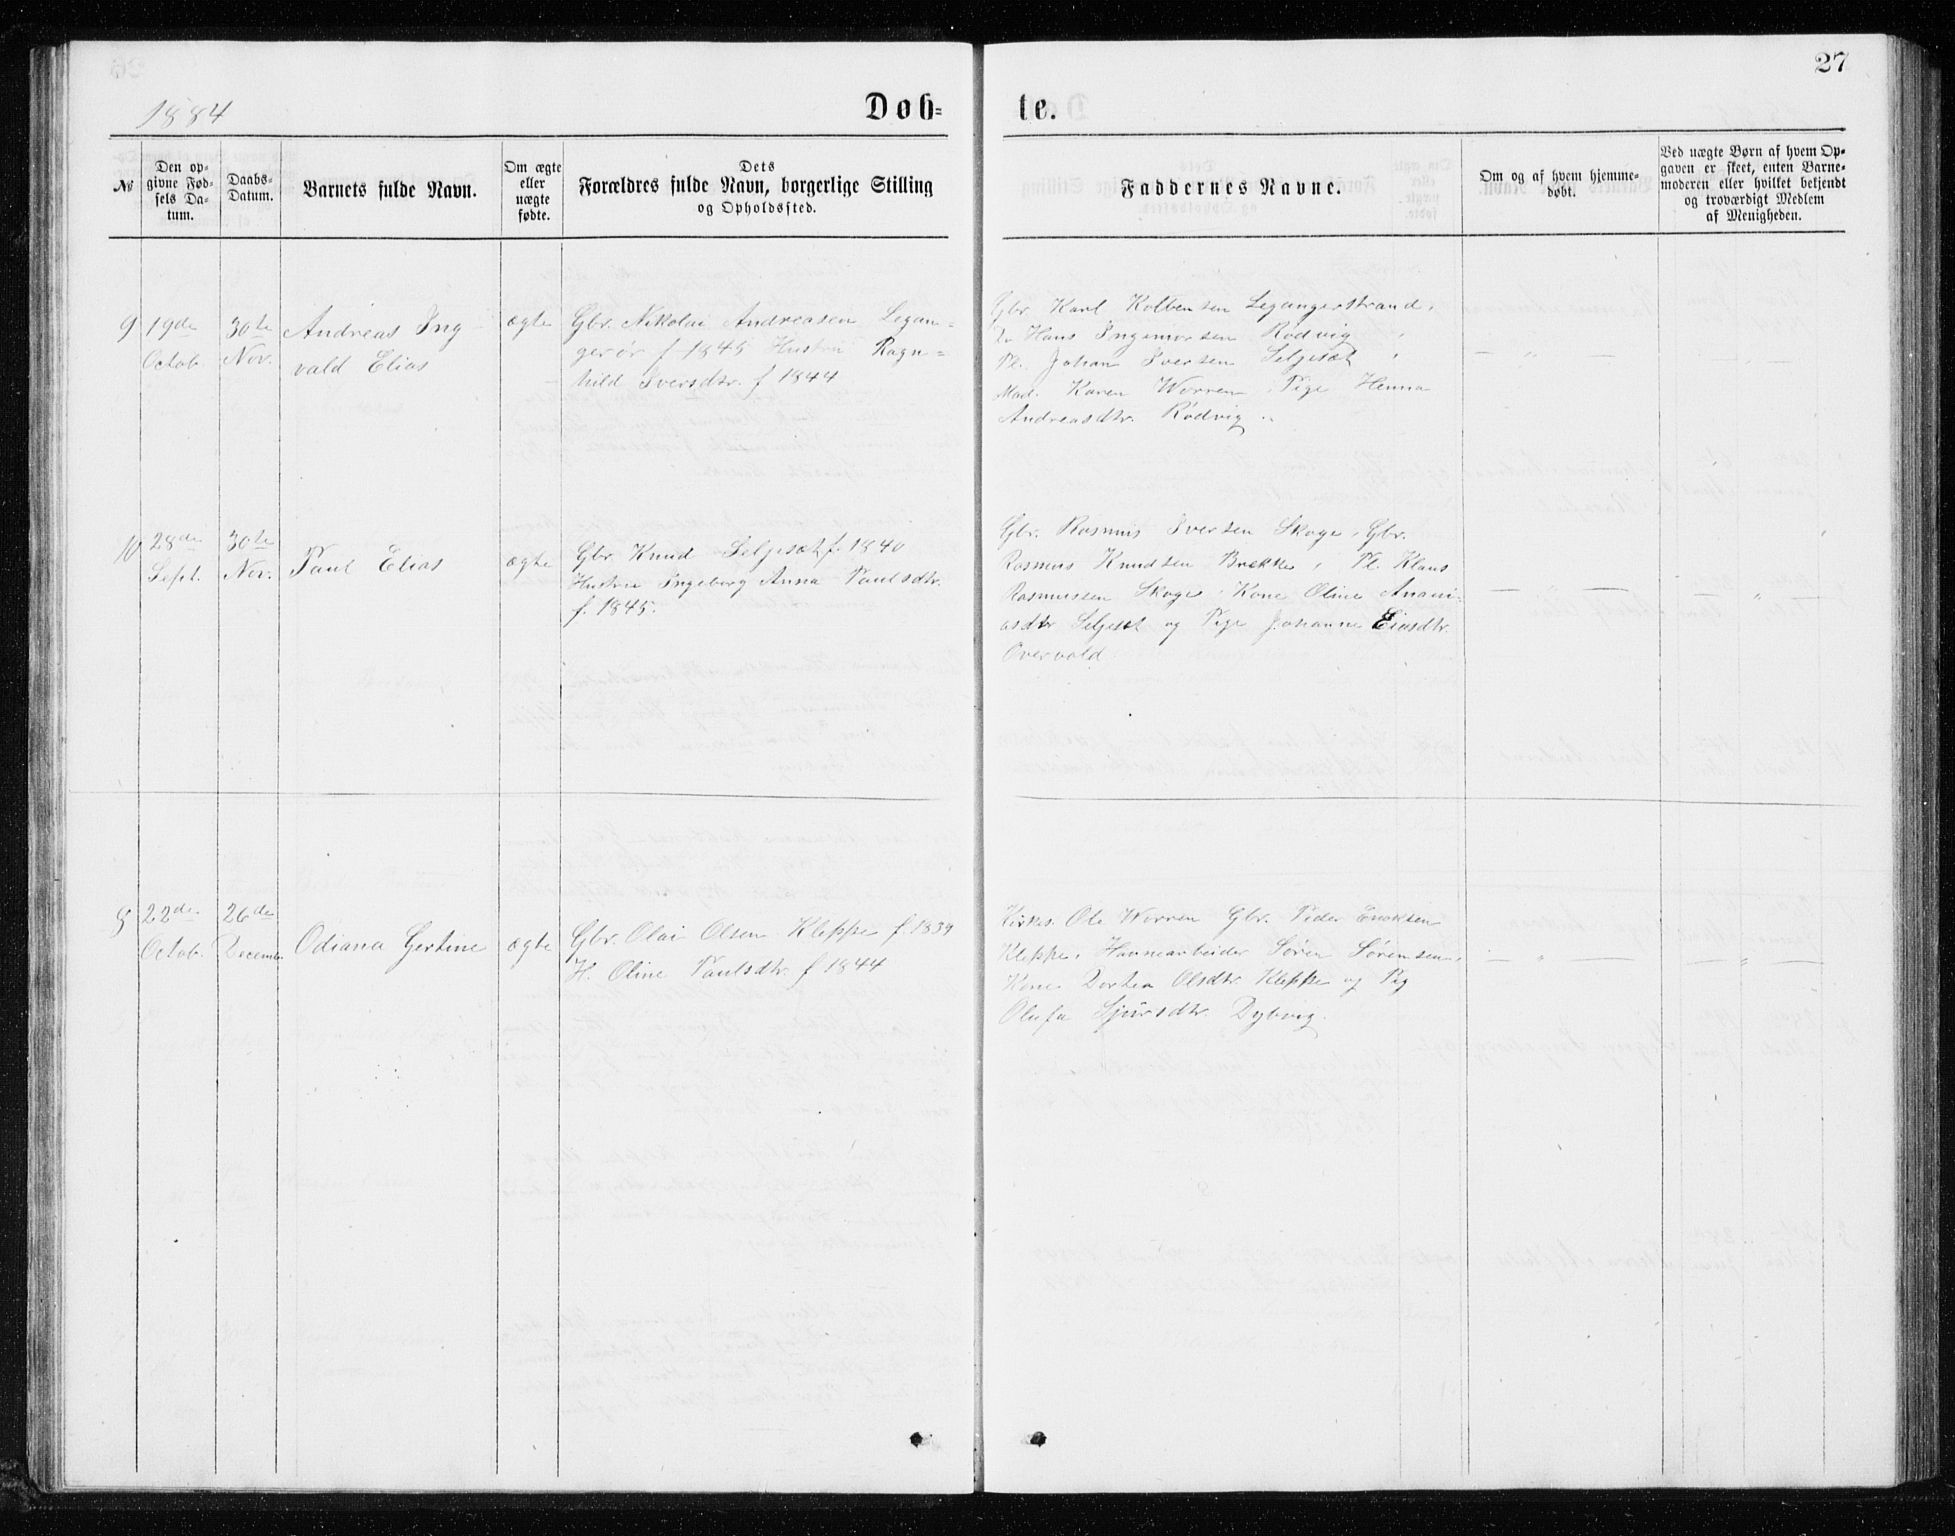 27
1884
Døb-
te.
№
Den op-
givne Fød-
sels Da-
tum.
Daabs-
Datum.
Barnets fulde Navn.
Om ægte
eller
uægte
fødte.
Dets
Forældres fulde Navn, borgerlige Stilling
og Opholdssted.
Faddernes Navne.
Om og af hvem hjemme-
døbt.
Ved uægte Børn af hvem Op-
gaven er skeet, enten Barne-
moderen eller hvilket bekjendt
og troværdigt Medlem
af Menigheden.
9
19de
Octob.
30te
Nov.
Andreas Ing-
vald Elias
ægte
Gbr. Nikolai Andreasen Legan-
gerør f 1845 Hustru Ragn-
hild Iversdtr. f 1844
Gbr. Karl Kolbensen Legangerstrand,
Do Hans Ingemorsen Rødvig,
Pl. Johan Iversen Seljeset,
Mad. Karen Worren, Pige Henna
Andreasdtr. Rødvig.
— " —
— " —
10
28de
Sept.
30te
Nov.
Paul Elias
ægte
Gbr. Knud Seljeset f. 1840
Hustru Ingeborg Anna Paulsdtr.
f. 1845.
Gbr. Rasmus Iversen Skoge, Gbr.
Rasmus Knudsen Brække, Pl. Klaus
Rasmussen Skoge, Kone Oline Anani-
asdtr Seljeset og Pige Johanne Eliasdtr.
Overvold
— " —
— " —
8
22de
Octob.
26de
Decemb.
Odiana Gertine
ægte
Gbr. Olai Olsen Kleppe f. 1839
H. Oline Paulsdtr. f 1844
Kirkes. Ole Worren Gbr. Peder Enoksen
Kleppe, Havnearbeider Søren Sørensen,
Kone Dorthea Olsdtr. Kleppe og Pig
Olufa Sjursdtr. Dybvig.
— " —
— " —